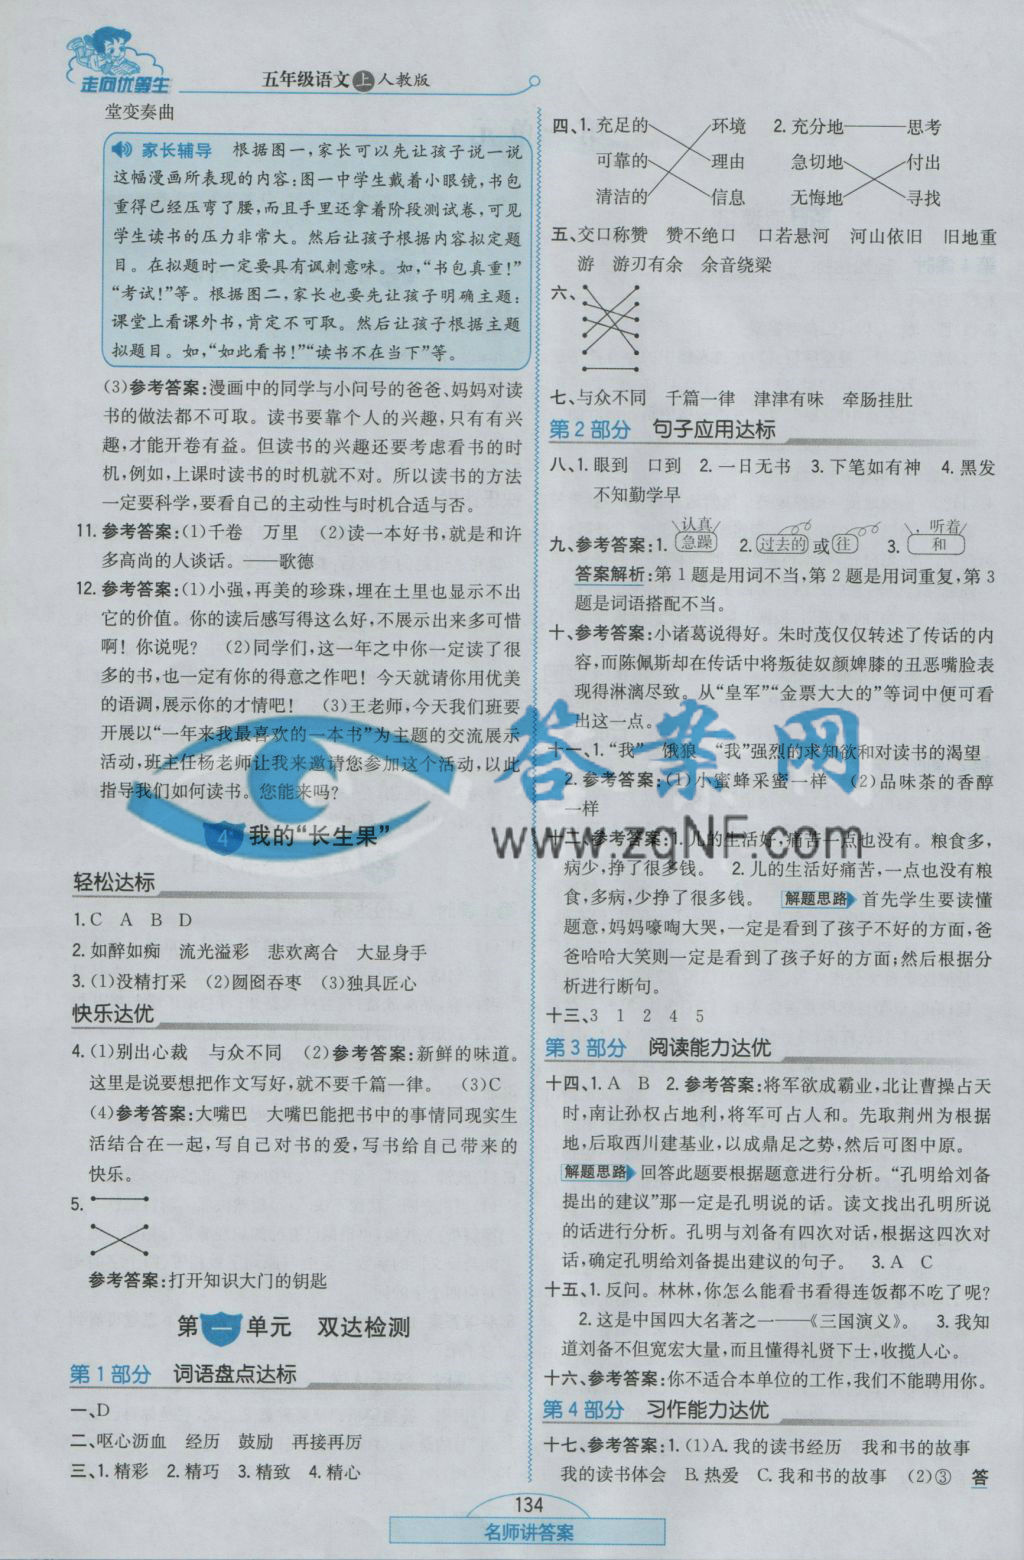 走向优等生
五年级语文上人教版
堂变奏曲
家长辅导 根据图一,家长可以先让孩子说一说
这幅漫画所表现的内容:图一中学生戴着小眼镜,书包
重得已经压弯了腰,而且手里还拿着阶段测试卷,可见
学生读书的压力非常大。然后让孩子根据内容拟定题
目。在拟题时一定要具有讽刺意味。如,“书包真重!”
“考试!”等。根据图二,家长也要先让孩子明确主题:
课堂上看课外书,肯定不可取。然后让孩子根据主题
拟题目。如,“如此看书!”“读书不在当下”等。
(3)参考答案:漫画中的同学与小问号的爸爸、妈妈对读
书的做法都不可取。读书要靠个人的兴趣,只有有兴
趣,才能开卷有益。但读书的兴趣还要考虑看书的时
机,例如,上课时读书的时机就不对。所以读书的方法
一定要科学,要看自己的主动性与时机合适与否。
11. 参考答案:(1)千卷 万里 (2)读一本好书,就是和许
多高尚的人谈话。——歌德
12. 参考答案:(1)小强,再美的珍珠,埋在土里也显示不出
它的价值。你的读后感写得这么好,不展示出来多可惜
啊!你说呢? (2)同学们,这一年之中你一定读了很
多的书,也一定有你的得意之作吧!今天就请你用优美
的语调,展示你的才情吧! (3)王老师,今天我们班要
开展以“一年来我最喜欢的一本书”为主题的交流展示
活动,班主任杨老师让我来邀请您参加这个活动,以此
指导我们如何读书。您能来吗?
4* 我的“长生果”
轻松达标
1. C A B D
2. 如醉如痴 流光溢彩 悲欢离合 大显身手
3. (1)没精打采 (2)囫囵吞枣 (3)独具匠心
快乐达优
4. (1)别出心裁 与众不同 (2)参考答案:新鲜的味道。
这里是说要想把作文写好,就不要千篇一律。 (3)C
(4)参考答案:大嘴巴 大嘴巴能把书中的事情同现实生
活结合在一起,写自己对书的爱,写书给自己带来的
快乐。
5.
参考答案:打开知识大门的钥匙
第一单元 双达检测
第1部分 词语盘点达标
一、D
二、呕心沥血 经历 鼓励 再接再厉
三、1. 精彩 2. 精巧 3. 精致 4. 精心
四、1. 充足的 环境 2. 充分地 思考
可靠的 理由 急切地 付出
清洁的 信息 无悔地 寻找
五、交口称赞 赞不绝口 口若悬河 河山依旧 旧地重
游 游刃有余 余音绕梁
六、
七、与众不同 千篇一律 津津有味 牵肠挂肚
第2部分 句子应用达标
八、1. 眼到 口到 2. 一日无书 3. 下笔如有神 4. 黑发
不知勤学早
认真 ,听着
九、参考答案:1. 急躁 2. 过去的或往 3. 和
答案解析:第1题是用词不当,第2题是用词重复,第3
题是词语搭配不当。
十、参考答案:小诸葛说得好。朱时茂仅仅转述了传话的内
容,而陈佩斯却在传话中将叛徒奴颜婢膝的丑恶嘴脸表
现得淋漓尽致。从“皇军”“金票大大的”等词中便可看
出这一点。
十一、1. “我” 饿狼 “我”强烈的求知欲和对读书的渴望
2. 参考答案:(1)小蜜蜂采蜜一样 (2)品味茶的香醇
一样
十二、参考答案:1. 儿的生活好,痛苦一点也没有。粮食多,
病少,挣了很多钱。 2. 儿的生活好痛苦,一点也没有粮
食,多病,少挣了很多钱。 解题思路 首先学生要读懂
题意,妈妈嚎啕大哭,一定是看到了孩子不好的方面,爸
爸哈哈大笑则一定是看到了孩子好的方面;然后根据分
析进行断句。
十三、3 1 2 4 5
第3部分 阅读能力达优
十四、1. A B 2. 参考答案:将军欲成霸业,北让曹操占天
时,南让孙权占地利,将军可占人和。先取荆州为根据
地,后取西川建基业,以成鼎足之势,然后可图中原。
解题思路 回答此题要根据题意进行分析。“孔明给刘备
提出的建议”那一定是孔明说的话。读文找出孔明所说
的话进行分析。孔明与刘备有四次对话,根据这四次对
话,确定孔明给刘备提出建议的句子。 3. A C
十五、1. 反问。林林,你怎么能看书看得连饭都不吃了呢?
2. 这是中国四大名著之一——《三国演义》。 3. 我知
道刘备不但宽宏大量,而且懂得礼贤下士,收揽人心。
十六、参考答案:你不适合本单位的工作,我们不能聘用你。
第4部分 习作能力达优
十七、参考答案:1. (1)A. 我的读书经历 我和书的故事
我的读书体会 B. 热爱 C. 我和书的故事 (2)③ 答
134
名师讲答案
答案网
www.zqNF.com